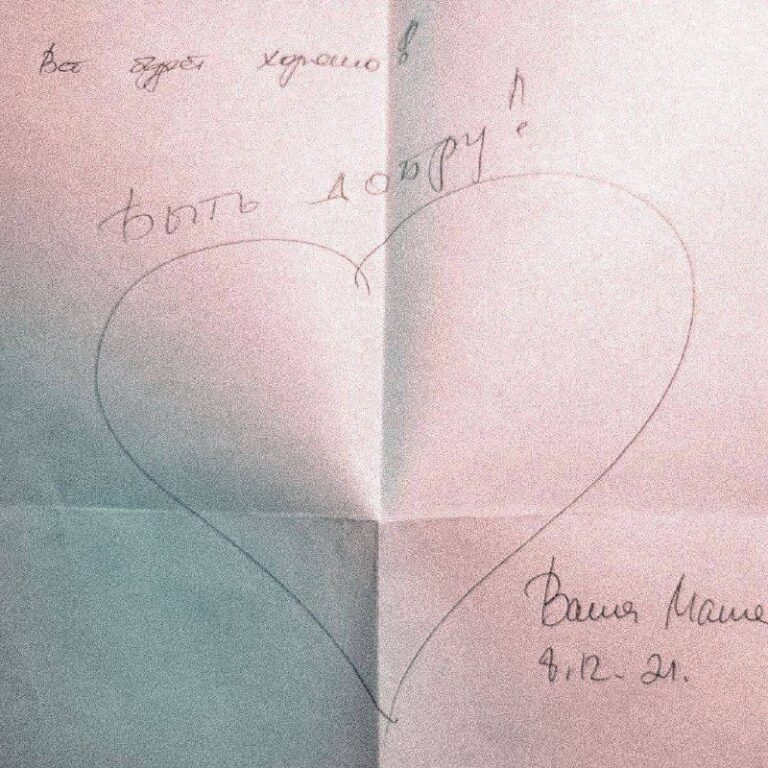 Все будет хорошо!
Быть добру!
Ваша Маша
8.12.21.